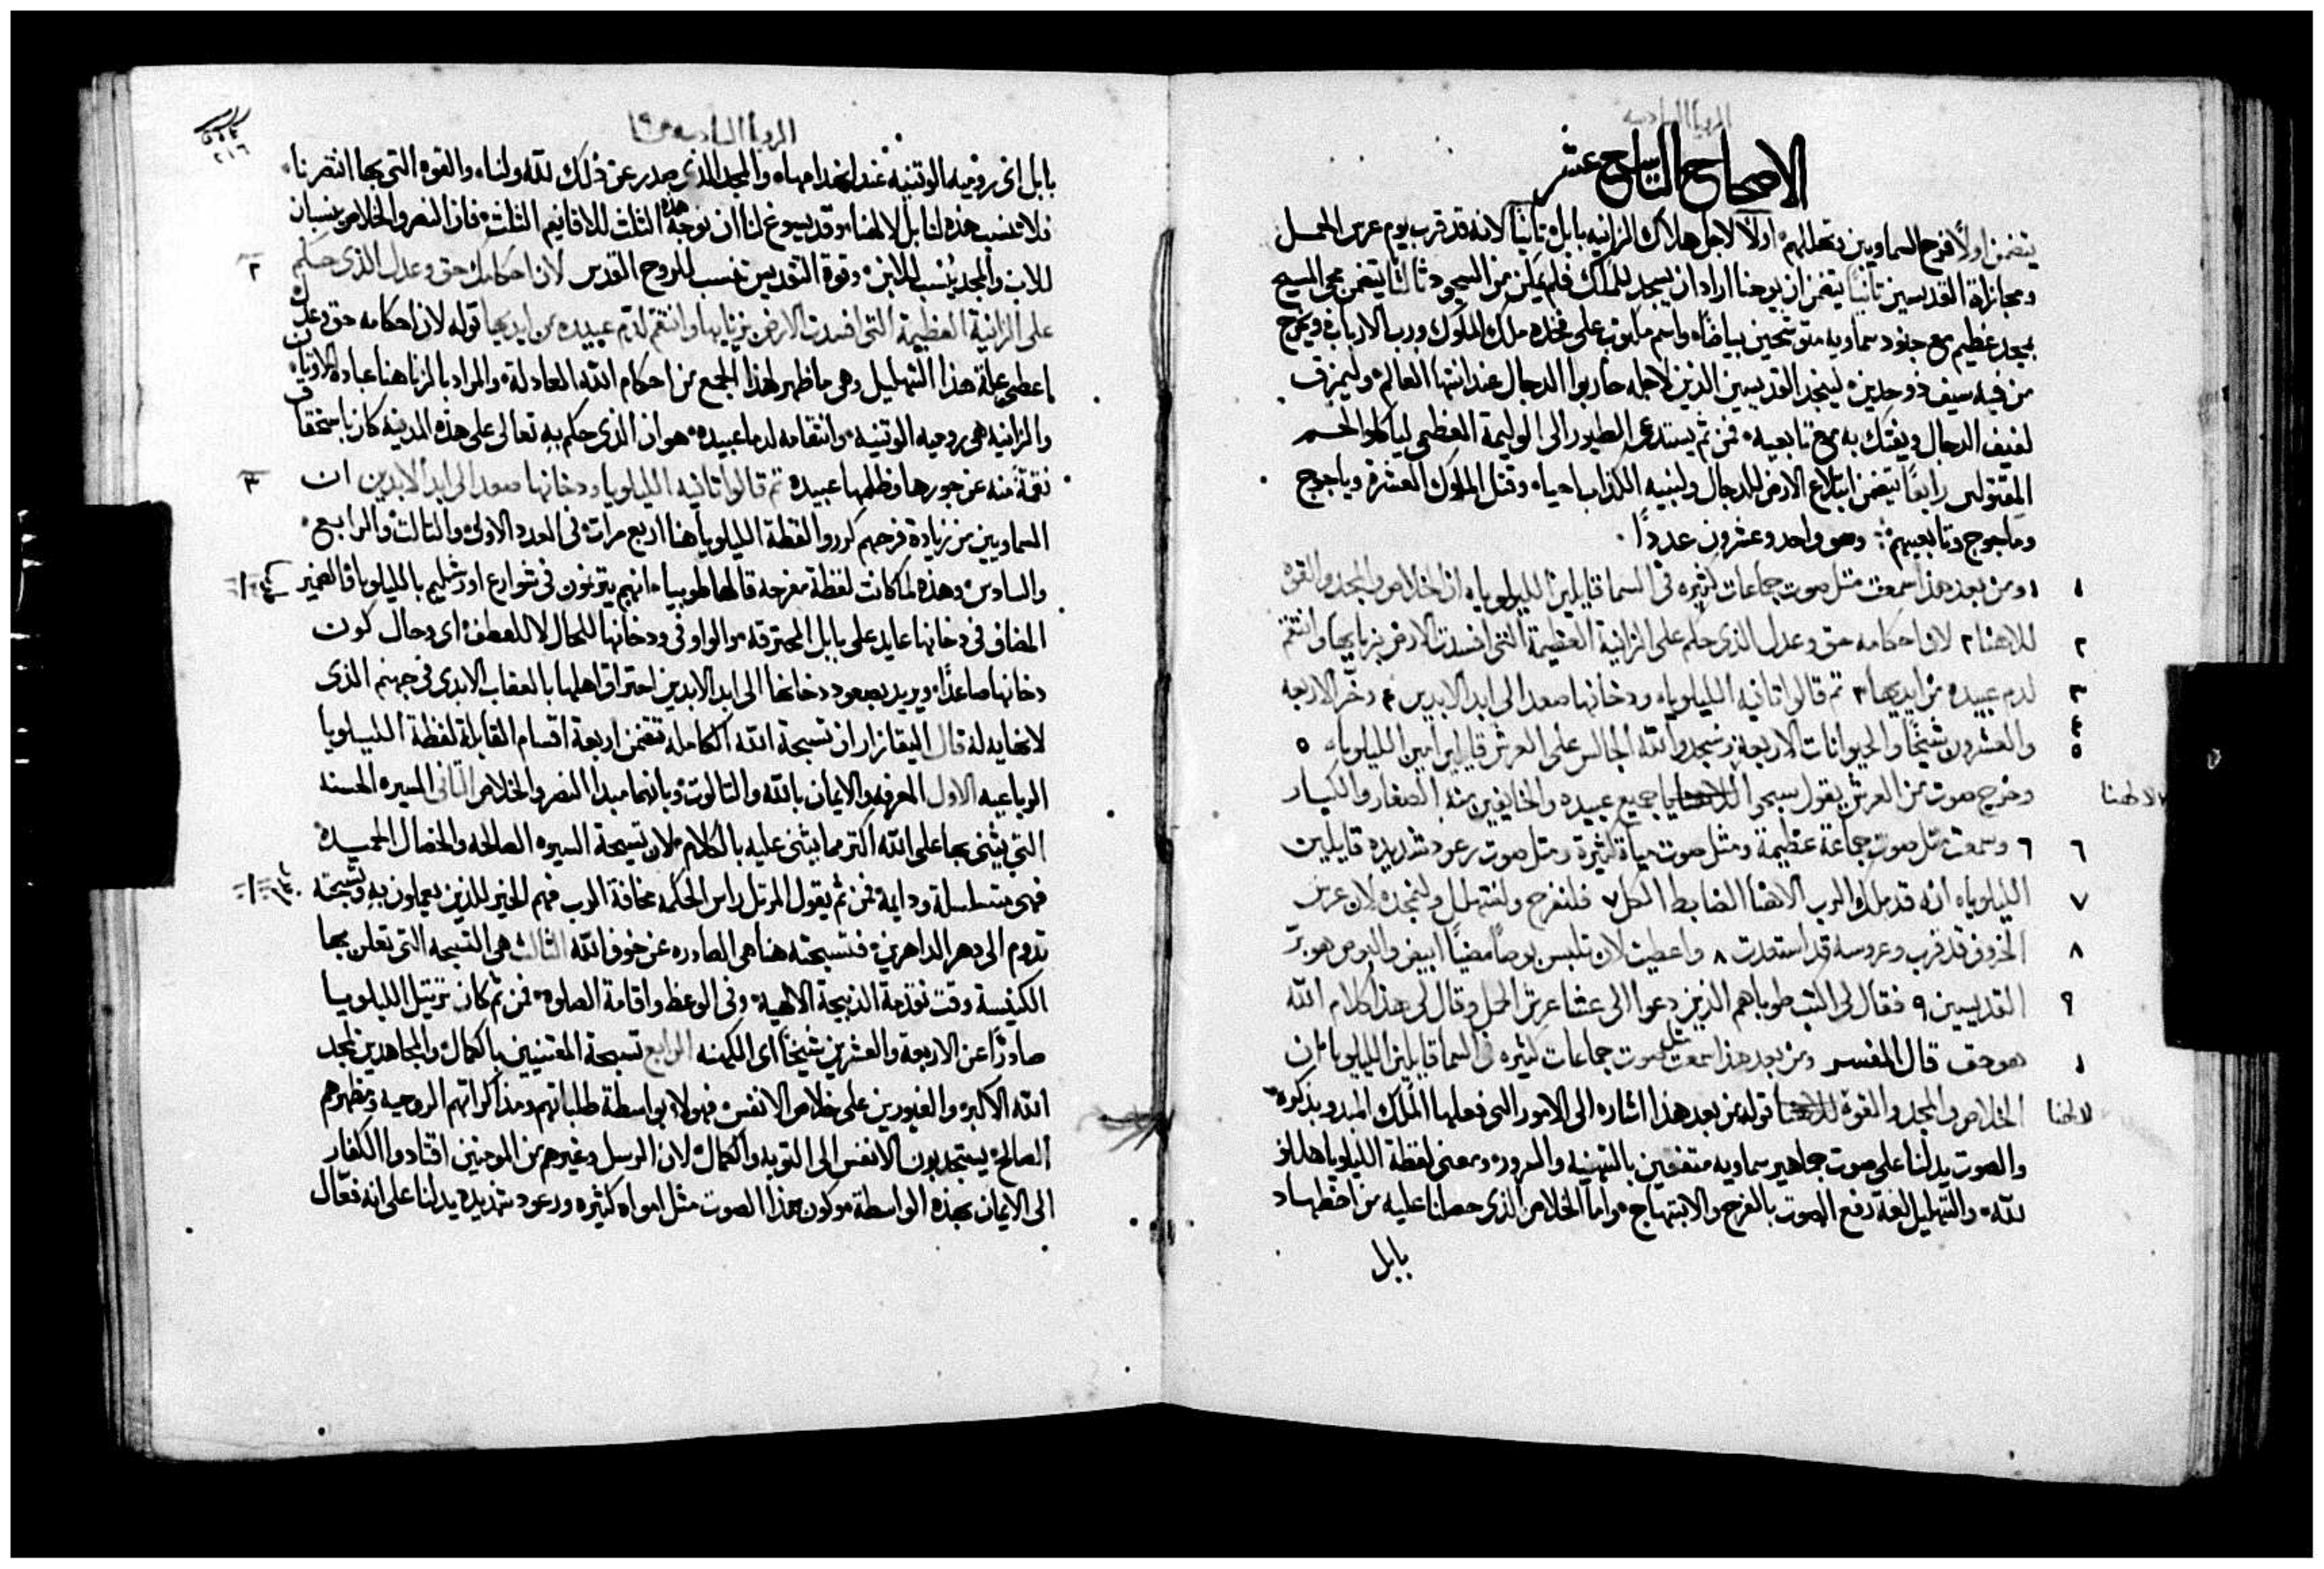 الرويا السادسه
الاصحاح التاسع عشر
يتضمن اولًا فرح السماويين وتهللهم اولًا لاجل هلاك الزانيه بابل ثانيًا لانه قد قرب يوم عرس الحمل
ومجازاة القديسين ثانيًا يتضمن ان يوحنا اراد ان يسجد للملاك فلم يمكن من السجود ثالثا يتضمن مجي المسيح
بمجد عظيم مع جنود سماويه متوشحين بياضًا واسم مكتوب على فخذه ملك الملوك ورب الارباب ويخرج
من فيه سيف ذو حدين لينجد القديسين الذين لاجله حاربوا الدجال عند انتها العالم وليمزق
لفيف الدجال ويفتك به مع تابعيه فمن ثم يستدعى الطيور الى الوليمة العظمى لياكلوا لحم
المقتولين رابعًا يتضمن ابتلاع الارض للدجال ولنبيه الكذاب احياء وقتل الملوك العشرة وياجوج
وماجوج وتابعيهم وهو واحد وعشرون عددًا
١ ١ ومن بعد هذا سمعت مثل صوت جماعات كثيره في السما قايلين الليلوياه ان الخلاص والمجد والقوه
٢ للاهنا ٢ لان احكامه حق وعدل الذى حكم على الزانية العظيمة التى افسدت الارض بزناها وانتقم
٣ لدم عبيده من ايديها ٣ ثم قالوا ثانيه الليلوياه ودخانها صعد الى ابد الابدين ٤ وخر الاربعه
٤ ٥ والعشرون شيخًا والحيوانات الاربعة وسجدوا لله الجالس على العرش قايلين امين الليلوياه ٥
وخرج صوت من العرش يقول سبحوا للاهنا يا جميع عبيده والخايفين منه الصغار والكبار
لالهنا
٦ ٦ وسمعت مثل صوت جماعة عظيمة ومثل صوت مياة كثيرة ومثل صوت رعود شديدة قايلين
٧ الليلوياه انه قد ملك الرب الاهنا الضابط الكل ٧ فلنفرح ولنتهلل ولنمجده لان عرس
٨ الخروف قد قرب وعروسه قد استعدت ٨ واعطيت لان تلبس بوصًا مضيًا ابيض والبوص هو بر
٩ القديسين ٩ فقال لى اكتب طوباهم الذين دعوا الى عشا عرش الحمل وقال لى هذا كلام الله
١ هو حق قال المفسر ومن بعد هذا سمعت مثل صوت جماعات كثيره في السما قايلين الليلويا ان
لالهنا الخلاص والمجد والقوة للاهنا قوله من بعد هذا اشاره الى الامور التى فعلها الملك المبدو بذكره
والصوت يدلنا على صوت جماهير سماويه متفقين بالتهنيه والسرور ومعنى لفظة الليلويا هللو
لله والتهليل لغة رفع الصوت بالفرح والابتهاج واما الخلاص الذى حصلنا عليه من اضطهاد
بابل
الرويا السادسه ص ١٩
٢١٦
بابل اى روميه الوثنيه عند انهدامها والمجد الذى صدر عن ذلك لله ولنا والقوه التى بها انتصرنا
فلا ننسب هذه لنا بل لالهنا وقد يسوغ لنا ان نوجه هذه الثلث للاقانيم الثلث فان النصر والخلاص ينسبان
٢ للاب والمجد ينسب للابن وقوة التقديس تنسب للروح القدس لان احكامك حق وعدل الذى حكم
على الزانية العظيمة التى افسدت الارض بزناها وانتقم لدم عبيده من ايديها قوله لان احكامه حق وعدل
اعطى علة هذا التهليل وهى ما ظهر لهذا الجمع من احكام الله العادلة والمراد بالزنا هنا عبادة الاوثان
والزانيه هى روميه الوثنيه وانتقامه لدما عبيده هو ان الذى حكم به تعالى على هذه المدينه كان باستحقاق
٣ نقمةً منه عن جورها وظلمها عبيده ثم قالوا ثانيه الليلويا ودخانها صعد الى ابد الابدين ان
السماويين من زيادة فرحهم كرروا لفظة الليلويا هنا اربع مرات في العدد الاول والثالث والرابع
والسادس وهذه لما كانت لفظة مفرحه قالها طوبيا انهم يترنمون في شوارع اورشليم بالليلويا فالضمير
المضاف في دخانها عايد على بابل المحترقه والواو في ودخانها للحال لا للعطف اى وحال كون
دخانها صاعدًا ويريد بصعود دخانها الى ابد الابدين احتراق اهلها بالعقاب الابدى في جهنم الذى
لا نهاية له قال اليقازار ان تسبحة الله الكامله تتضمن اربعة اقسام القابلة لفظة الليلويا
الرباعيه الاول المعرفه والايمان بالله والثالوث وبانهما مبدا النصر والخلاص الثانى السيره الحسنه
التي يثنى بها على الله اكتر مما يثنى عليه بالكلام لان تسبحة السيره الصالحه والخصال الحميده
فهى متسلسلة ودايمة فمن ثم يقول المرتل راس الحكمه مخافة الرب فهم الخير للذين يعملون به وتسبحته
تدوم الى دهر الداهرين فتسبحته هنا هى الصادره عن خوف الله الثالث هى التسبحه التى تعلن بها
الكنيسة وقت تقدمة الذبيحة الالهيه وفي الوعظ واقامة الصلوه فمن ثم كان ترتيل الليلويا
صادرًا عن الاربعة والعشرين شيخًا اى الكهنه الرابع تسبحة المعتنيين بالكمال والمجاهدين لمجد
الله الاكبر والغيورين على خلاص الانفس فهولا بواسطة طلباتهم ومذاكراتهم الروحيه وتظهرهم
الصالح يستجدبون الانفس الى التوبه والكمال لان الرسل وغيرهم من المومنين اقتادوا الكفار
الى الايمان بهذه الواسطة وكون هذا الصوت مثل امواه كثيره ورعود شديدة يدلنا على انه فعّال